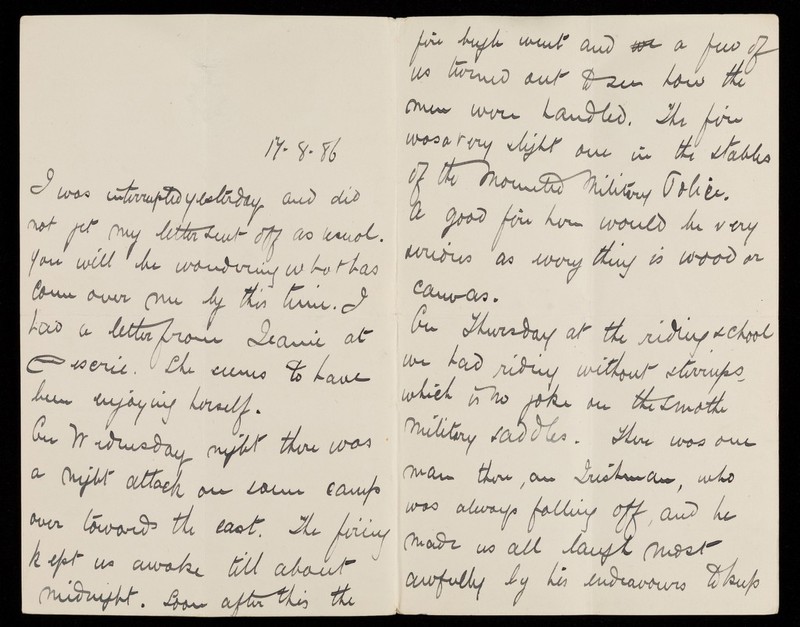 17-8-86
I was interrupted yesterday and did
not get my letter sent off as usual.
You will be wondering what has
come over me by this time. I
had a letter from Jeanie at
She seems to have
been enjoying herself.
On Wednesday night there was
a night attack on some camp
over towards the east. The firing
kept us awake till about
midnight. Soon after this the
fire bugle went and we a few of
us turned out to see how the
men were handled. The fire
was a very slight one in the stables
of the Mounted Military Police.
A good fire here would be very
serious as every thing is wood or
canvas.
On Thursday at the riding school
we had riding without stirrups,
which is no joke on the smooth
military saddles. There was one
man there, an Irishman, who
was always falling off, and he
made us all laugh most
awfully by his endeavours to keep